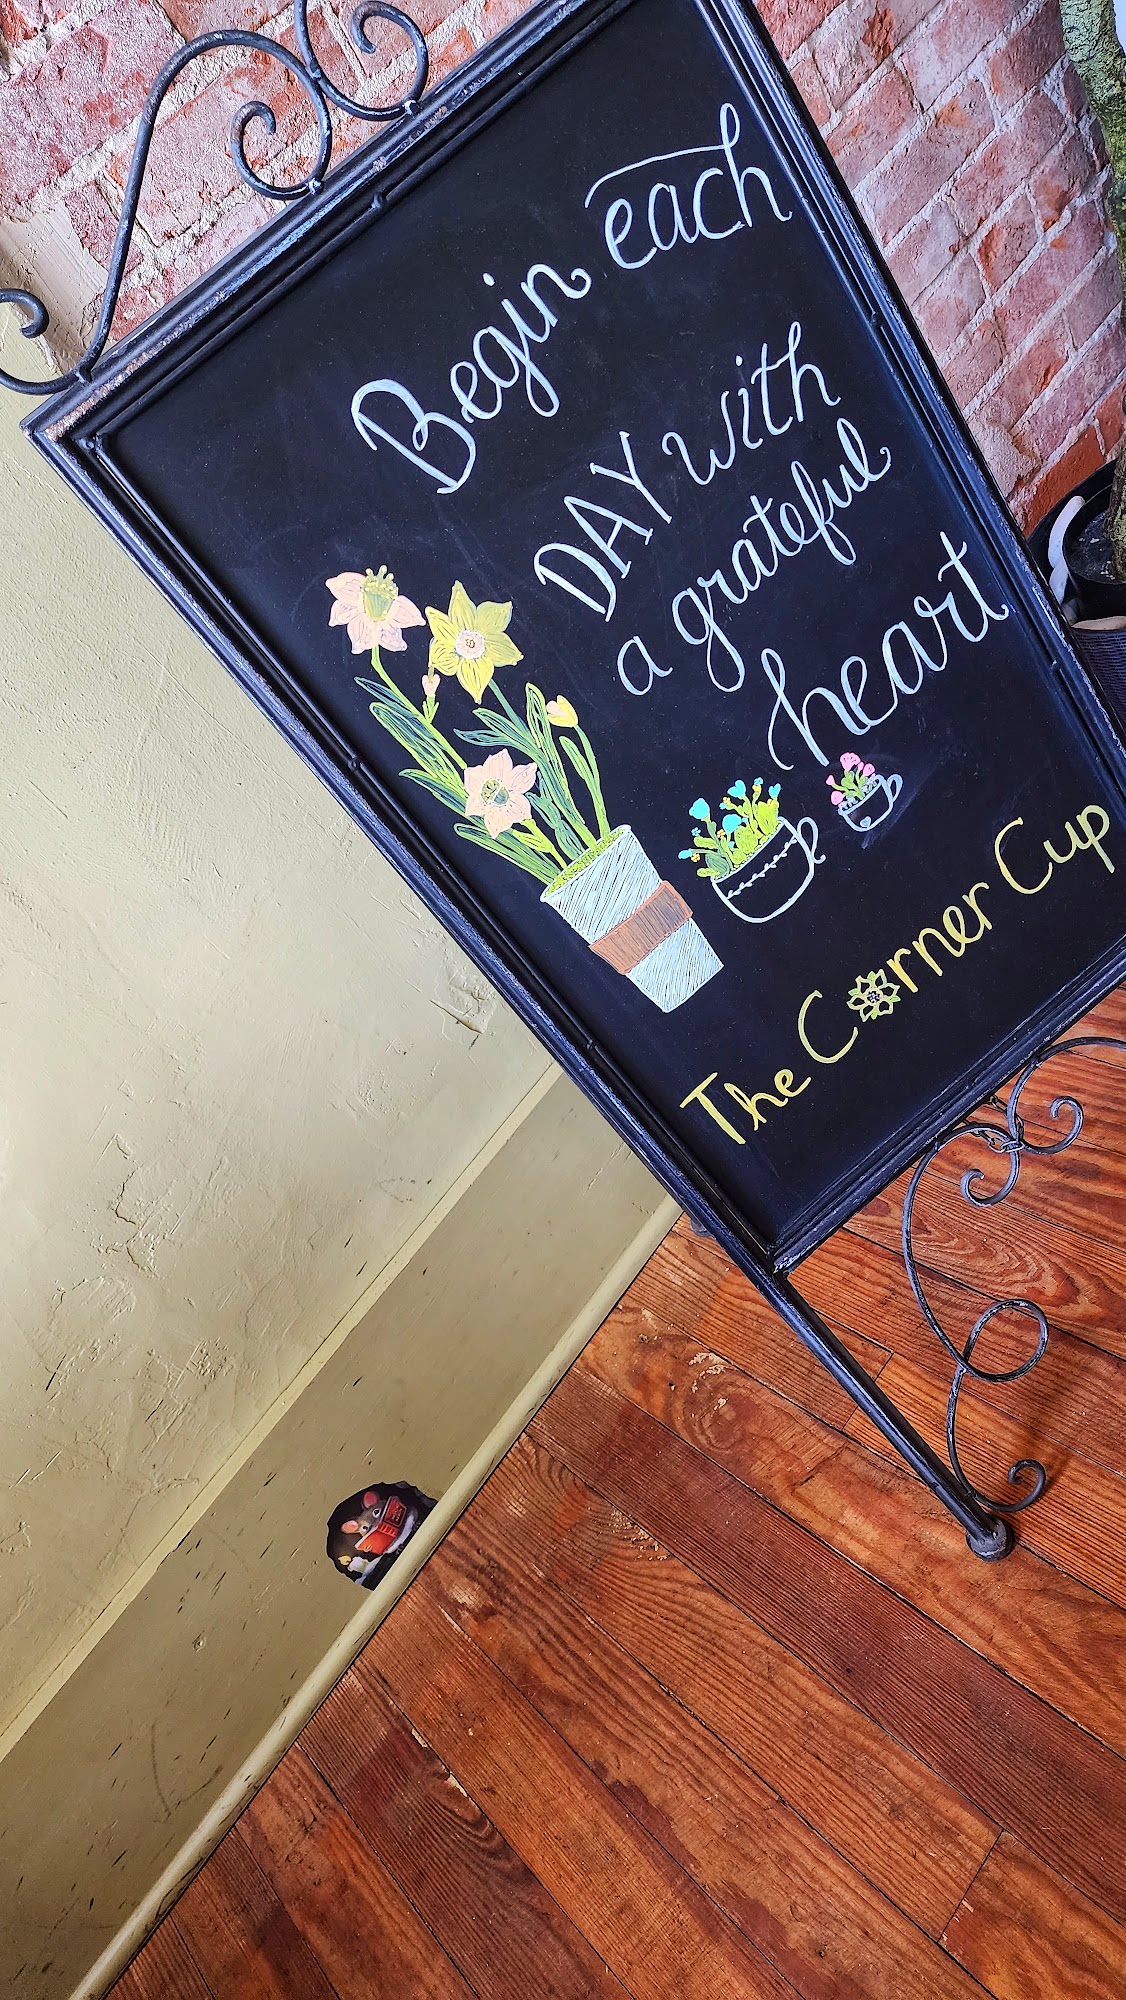 Begin each
DAY with
a grateful
heart
The Corner Cup